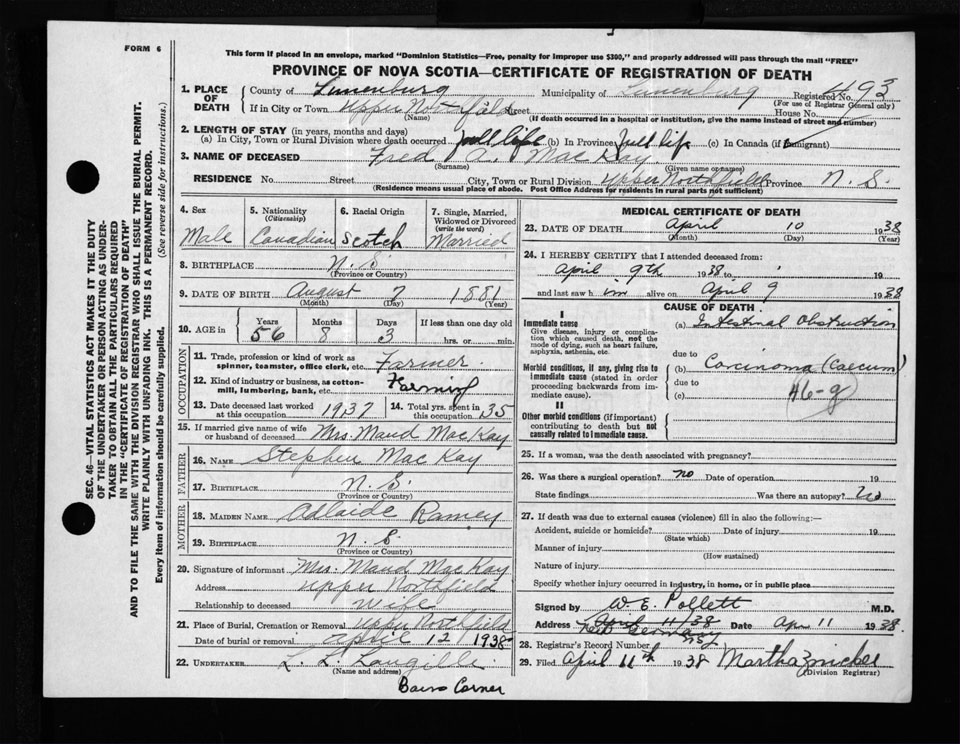 FORM 6
This form if placed in an envelope, marked "Dominion Statistics—Free, penalty for improper use $300," and properly addressed will pass through the mail "FREE"
PROVINCE OF NOVA SCOTIA—CERTIFICATE OF REGISTRATION OF DEATH
SEC. 46—VITAL STATISTICS ACT MAKES IT THE DUTY
OF THE UNDERTAKER OR PERSON ACTING AS UNDER-
TAKER TO OBTAIN ALL THE PARTICULARS REQUIRED
IN THE "CERTIFICATE OF REGISTRATION OF DEATH"
AND TO FILE THE SAME WITH THE DIVISION REGISTRAR WHO SHALL ISSUE THE BURIAL PERMIT.
WRITE PLAINLY WITH UNFADING INK. THIS IS A PERMANENT RECORD.
Every item of information should be carefully supplied. (See reverse side for instructions.)
1. PLACE OF DEATH County of Lunenburg Municipality of Lunenburg Registered No. 493
(For use of Registrar General only)
If in City or Town Upper Northfield Street House No.
(Name) (If death occurred in a hospital or institution, give the name instead of street and number)
2. LENGTH OF STAY (in years, months and days)
(a) In City, Town or Rural Division where death occurred full life (b) In Province full life (c) In Canada (if immigrant)
3. NAME OF DECEASED Fred A. MacKay
(Surname) (Given name or names)
RESIDENCE No. Street City, Town or Rural Division Upper Northfield Province N. S.
(Residence means usual place of abode. Post Office Address for residents in rural parts not sufficient)
4. Sex 5. Nationality (Citizenship) 6. Racial Origin 7. Single, Married, Widowed or Divorced (write the word)
Male Canadian Scotch Married
8. BIRTHPLACE N. S.
(Province or Country)
9. DATE OF BIRTH August 7 1881
(Month) (Day) (Year)
10. AGE in Years Months Days If less than one day old
56 8 3 hrs. or min.
OCCUPATION
11. Trade, profession or kind of work as spinner, teamster, office clerk, etc. Farmer
12. Kind of industry or business, as cotton-mill, lumbering, bank, etc. Farming
13. Date deceased last worked at this occupation 1937 14. Total yrs. spent in this occupation 35
15. If married give name of wife or husband of deceased Mrs. Maud MacKay
FATHER
16. NAME Stephen MacKay
17. BIRTHPLACE N. S.
(Province or Country)
MOTHER
18. MAIDEN NAME Adlaide Ramey
19. BIRTHPLACE N. S.
(Province or Country)
20. Signature of informant Mrs. Maud MacKay
Address Upper Northfield
Relationship to deceased Wife
21. Place of Burial, Cremation or Removal Upper Northfield
Date of burial or removal April 12 1938
22. UNDERTAKER L. L. Langille
(Name and address)
Barss Corner
MEDICAL CERTIFICATE OF DEATH
23. DATE OF DEATH April 10 1938
(Month) (Day) (Year)
24. I HEREBY CERTIFY that I attended deceased from:
April 9th 1938 to 19
and last saw h im alive on April 9 1938
CAUSE OF DEATH
I
Immediate cause
Give disease, injury or complication which caused death, not the mode of dying, such as heart failure, asphyxia, asthenia, etc.
(a) Intestinal Obstruction
due to
Morbid conditions, if any, giving rise to immediate cause (stated in order proceeding backwards from immediate cause).
(b) Carcinoma (Caecum)
due to
(c) 46-g
II
Other morbid conditions (if important) contributing to death but not causally related to immediate cause.
25. If a woman, was the death associated with pregnancy?
26. Was there a surgical operation? no Date of operation 19
State findings Was there an autopsy? No
27. If death was due to external causes (violence) fill in also the following:—
Accident, suicide or homicide? Date of injury 19
(State which)
Manner of injury
(How sustained)
Nature of injury
Specify whether injury occurred in industry, in home, or in public place
Signed by W. E. Pollett M.D.
Address April 11/38 New Germany Date Apr 11 1938
28. Registrar's Record Number
29. Filed April 11th 1938 Martha Zwicker
(Division Registrar)